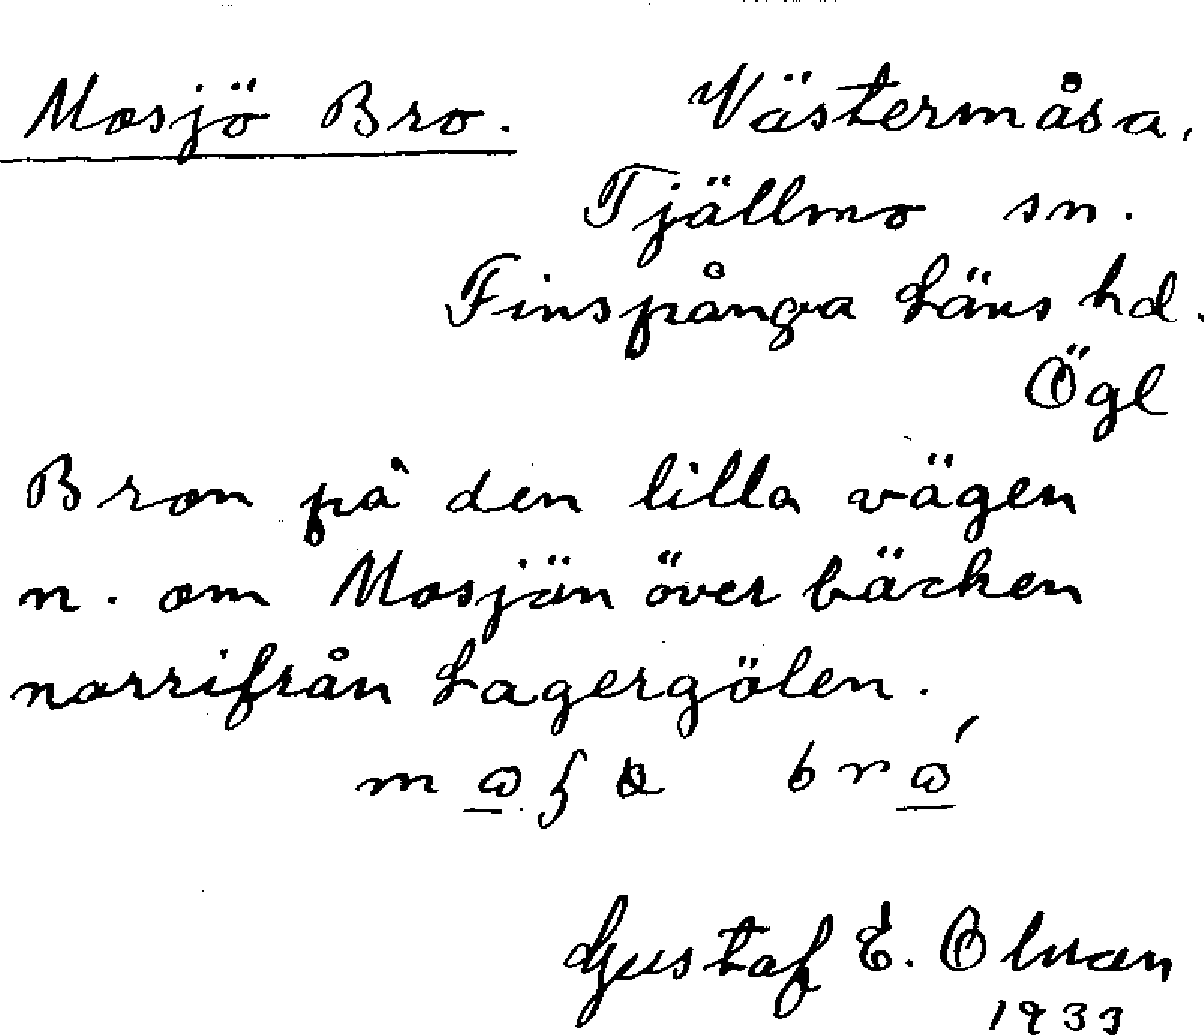 Mosjö Bro. Västermåsa,
Tjällmo sn.
Finspånga Läns hd.
Ögl
Bron på den lilla vägen
n. om Mosjön över bäcken
norrifrån Lagergölen.
Gustaf E. Olman
1933